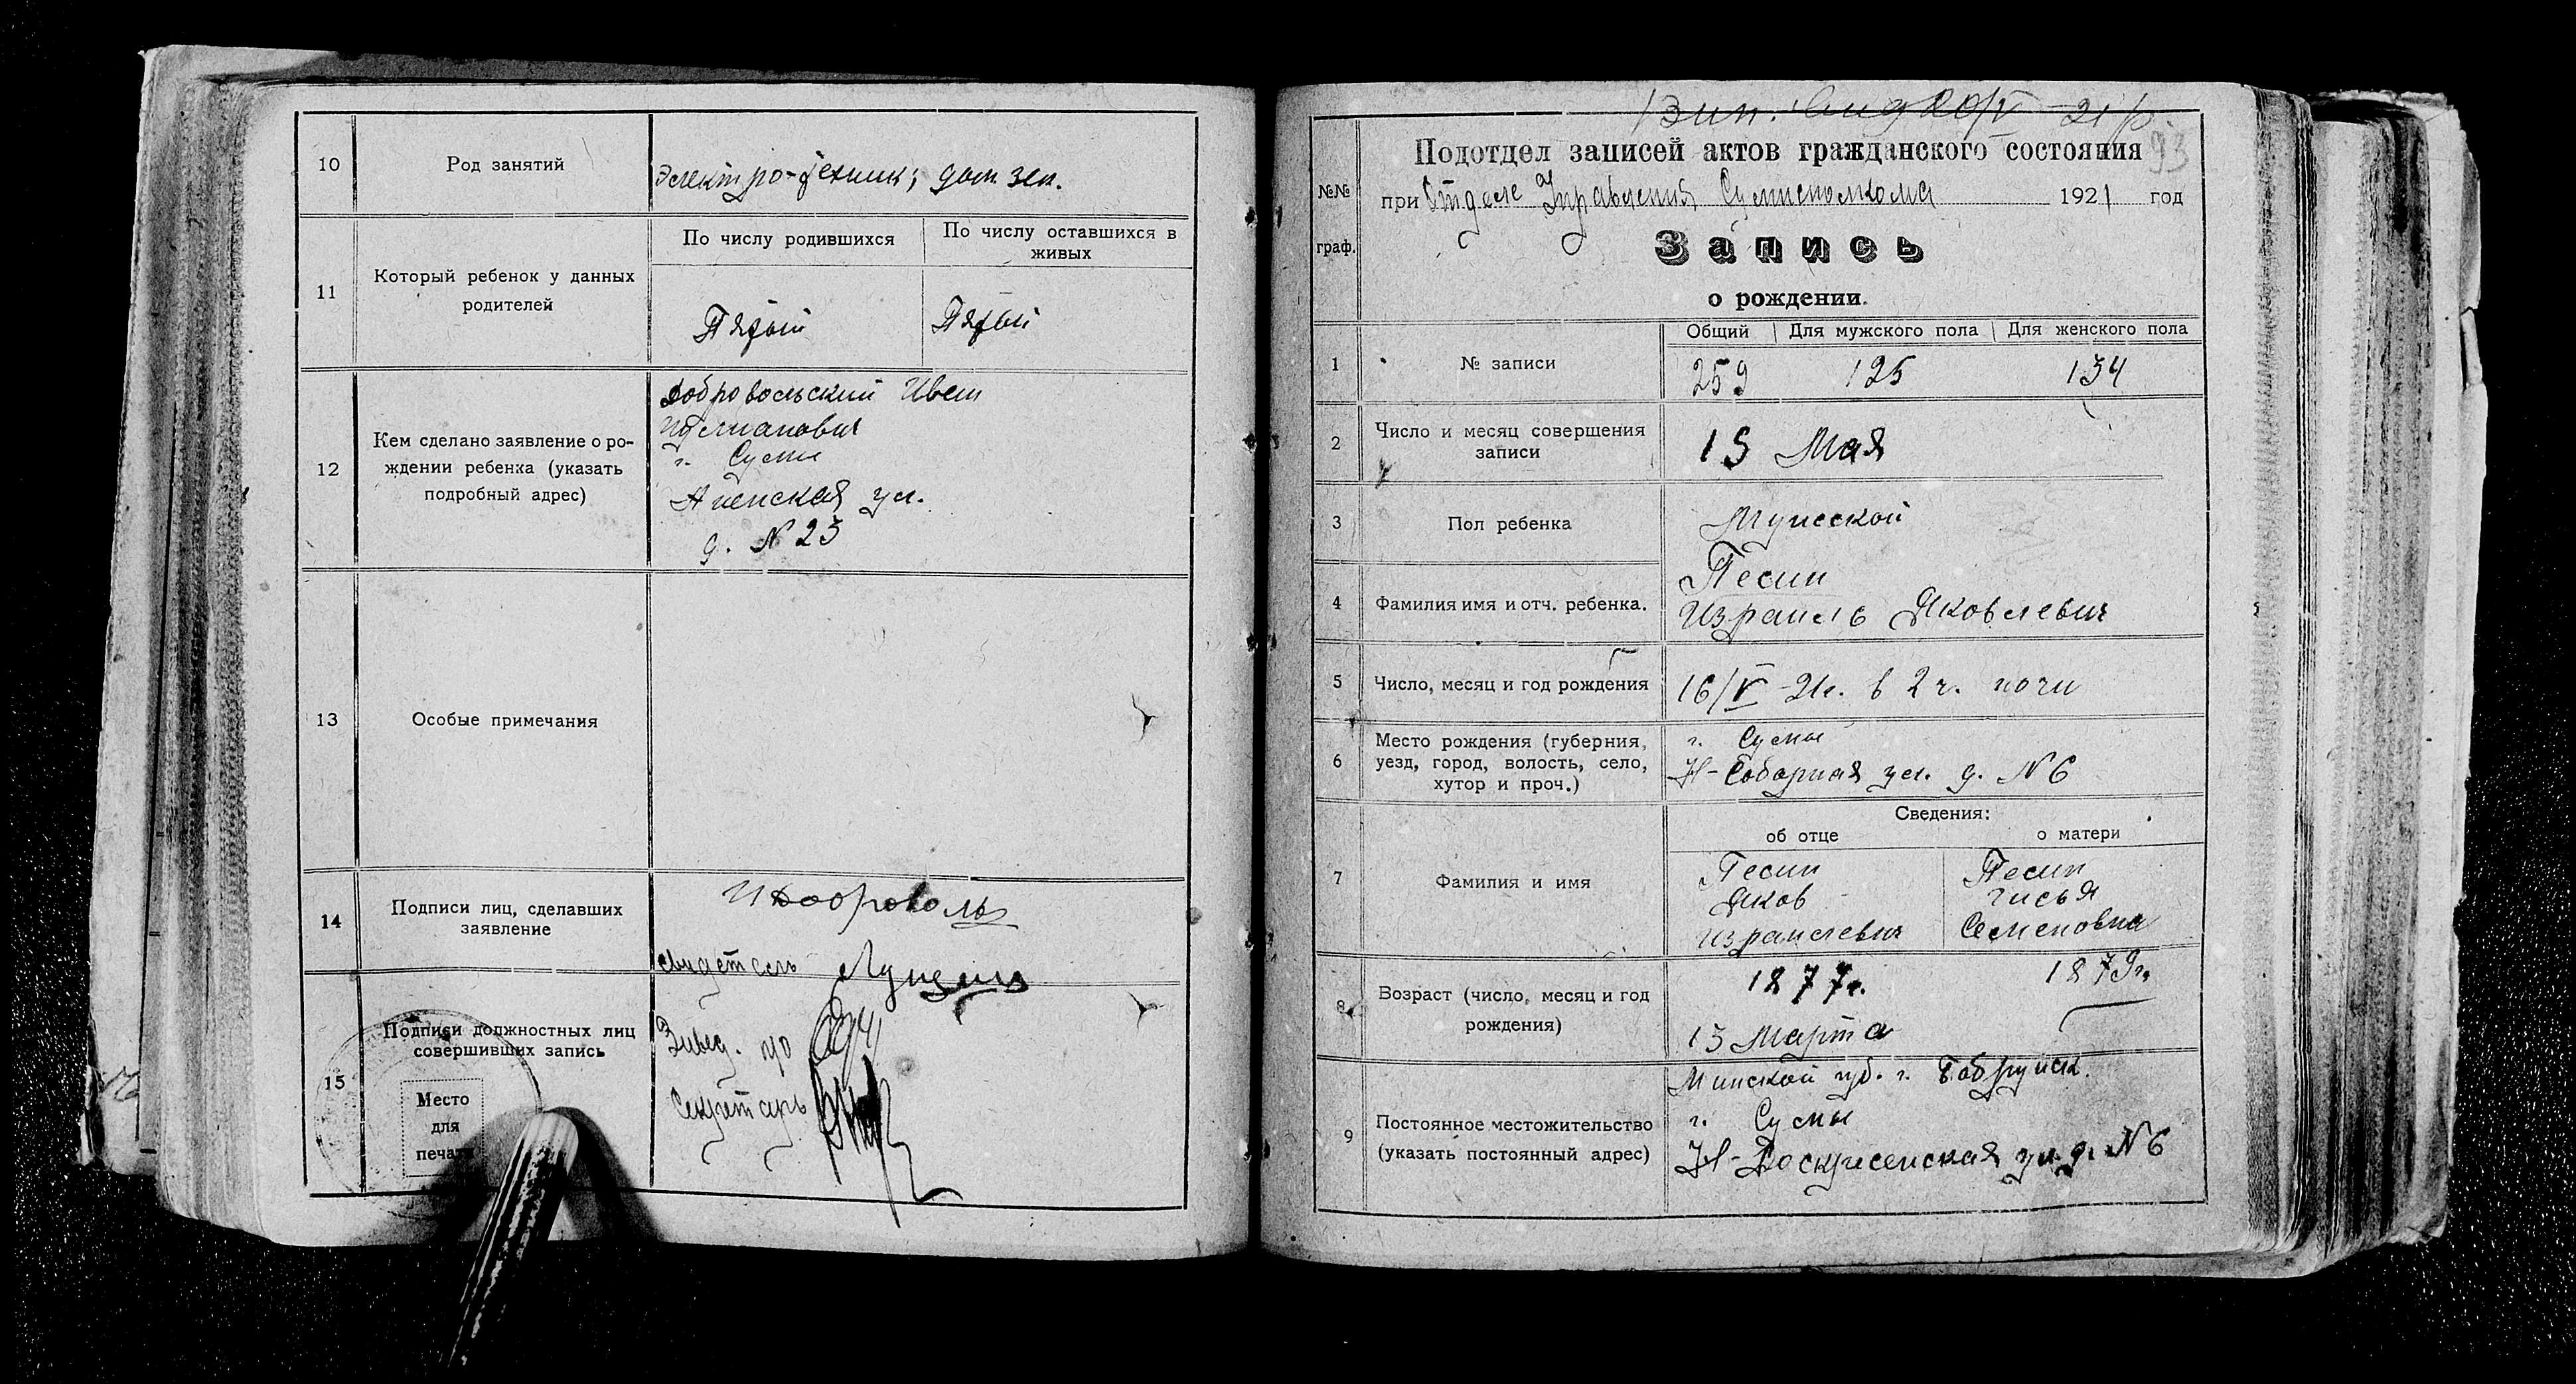 10
Род занятий
Электро-техник; дом. зан.
11
Который ребенок у данных
родителей
По числу родившихся
По числу оставшихся в
живых
Пятый
Пятый
12
Кем сделано заявление о ро-
ждении ребенка (указать
подробный адрес)
Добровольский
г. Сумы
ул.
д. N 23
13
Особые примечания
14
Подписи лиц, сделавших
заявление
И Доброволь
свидетель
15
Подписи должностных лиц
совершивших запись
Место
для
печати
Завед. п/о
Секретарь
93
Подотдел записей актов гражданского состояния
№№
граф.
при Отделе Управления Сумисполкома 1921 год
Запись
о рождении.
Общий Для мужского пола Для женского пола
1
№ записи
259 125 134
2
Число и месяц совершения
записи
19 Мая
3
Пол ребенка
Мужской
4
Фамилия имя и отч. ребенка.
Песин
Израиль Яковлевич
5
Число, месяц и год рождения
16/V-21г. в 2 ч. ночи
6
Место рождения (губерния,
уезд, город, волость, село,
хутор и проч.)
г. Сумы
Н-Соборная ул. д. N 6
Сведения:
об отце
о матери
7
Фамилия и имя
Песин
Яков
Израилевич
Песин
Гисья
Семеновна
8
Возраст (число, месяц и год
рождения)
1877г.
13 Марта
1879г.
9
Постоянное местожительство
(указать постоянный адрес)
Минской губ. г. Бобруйск.
г. Сумы
Н-Воскресенская ул. д. N 6